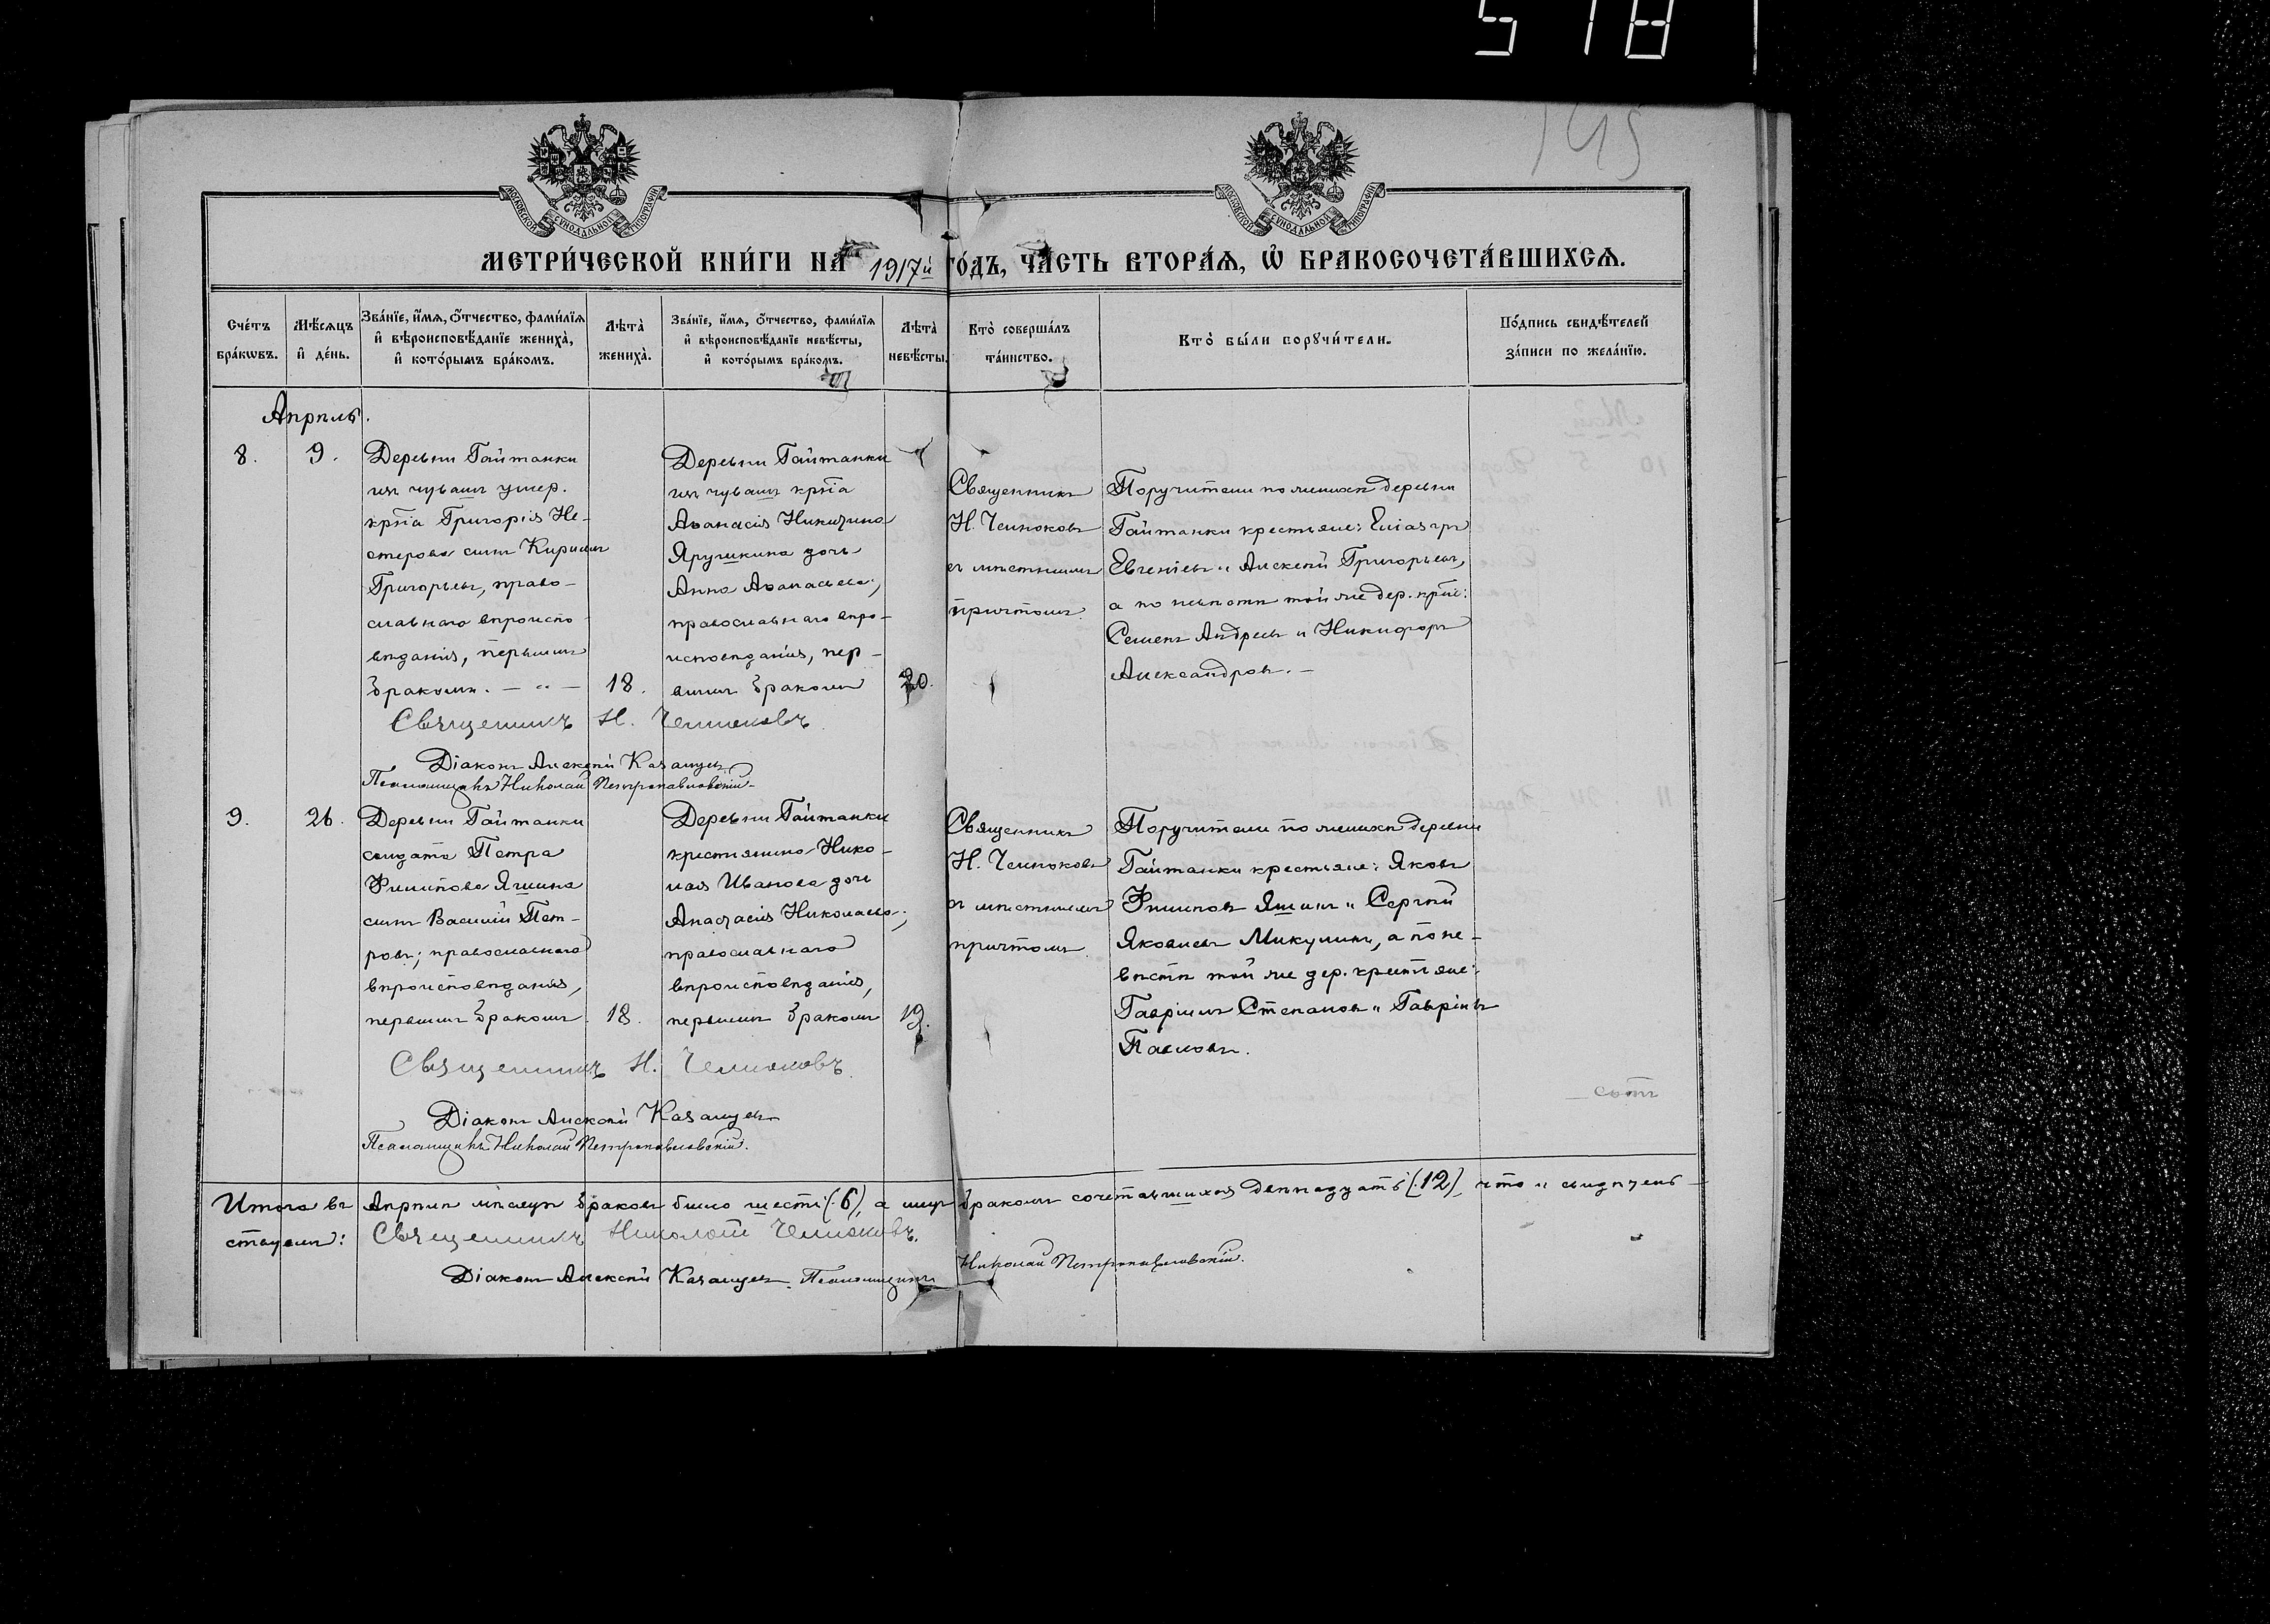 518
145
МОСКОВСКОЙ СУНОДАЛЬНОЙ ТИПОГРАФІИ
МОСКОВСКОЙ СУНОДАЛЬНОЙ ТИПОГРАФІИ
МЕТРИ́ЧЕСКОЙ КНИ́ГИ НА 1917й ГО́ДЪ, ЧА́СТЬ ВТОРА́Я, Ѡ БРАКОСОЧЕТА́ВШИХСЯ.
Сче́тъ бра́кѡвъ.
Мѣ́сяцъ и де́нь.
Зва́нїе, и́мя, ѻ́тчество, фами́лїя и вѣроисповѣ́данїе жениха̀, и кото́рымъ бра́комъ.
Лѣта̀ жениха̀.
Зва́нїе, и́мя, ѻ́тчество, фами́лїя и вѣроисповѣ́данїе невѣ́сты, и кото́рымъ бра́комъ.
Лѣта̀ невѣ́сты.
Кто̀ соверша́лъ та́инство.
Кто̀ бы́ли порꙋчи́тели.
По́дпись свидѣ́телей за́писи по жела́нїю.
Апрѣль.
8.
9.
Деревни Гайтанки
изъ чувашъ умер.
кр-на Григорія Не-
стерова сынъ Кириллъ
Григорьевъ, право-
славнаго вѣроиспо-
вѣданія, первымъ
бракомъ. — „ —
18.
Деревни Гайтанки
изъ чувашъ кр-на
Аѳанасія Никитина
Ярушкина дочь
Анна Аѳанасьева;
православнаго вѣро-
исповѣданія, пер-
вымъ бракомъ
20.
Священникъ
Н. Челноковъ
съ мѣстнымъ
причтомъ.
Поручители по женихѣ деревни
Гайтанки крестьяне: Еліазаръ
Евгеніевъ и Алексѣй Григорьевъ,
а по невѣстѣ той же дер. кр-не:
Семенъ Андреевъ и Никифоръ
Александровъ. —
Священникъ Н. Челноковъ
Діаконъ Алексѣй Казанцевъ
Псаломщикъ Николай Петропавловскій.
9.
26.
Деревни Гайтанки
солдата Петра
Филипова Яшина
сынъ Василій Пет-
ровъ; православнаго
вѣроисповѣданія,
первымъ бракомъ
18.
Деревни Гайтанки
крестьянина Нико-
лая Иванова дочь
Анастасія Николаева;
православнаго
вѣроисповѣданія,
первымъ бракомъ
19.
Священникъ
Н. Челноковъ
съ мѣстнымъ
причтомъ.
Поручители по женихѣ деревни
Гайтанки крестьяне: Яковъ
Филиповъ Яшинъ и Сергѣй
Яковлевъ Микулинъ, а по не-
вѣстѣ той же дер. крестьяне:
Гавріилъ Степановъ и Гавріилъ
Павловъ.
Священникъ Н. Челноковъ.
Діаконъ Алексѣй Казанцевъ
Псаломщикъ Николай Петропавловскій.
Итого въ Апрѣлѣ мѣсяцѣ браковъ было шесть (6), а лицъ бракомъ сочетавшихся двѣнадцать (12), что и свидѣтель-
ствуемъ: Священникъ Николай Челноковъ.
Діаконъ Алексѣй Казанцевъ. Псаломщикъ Николай Петропавловскій.